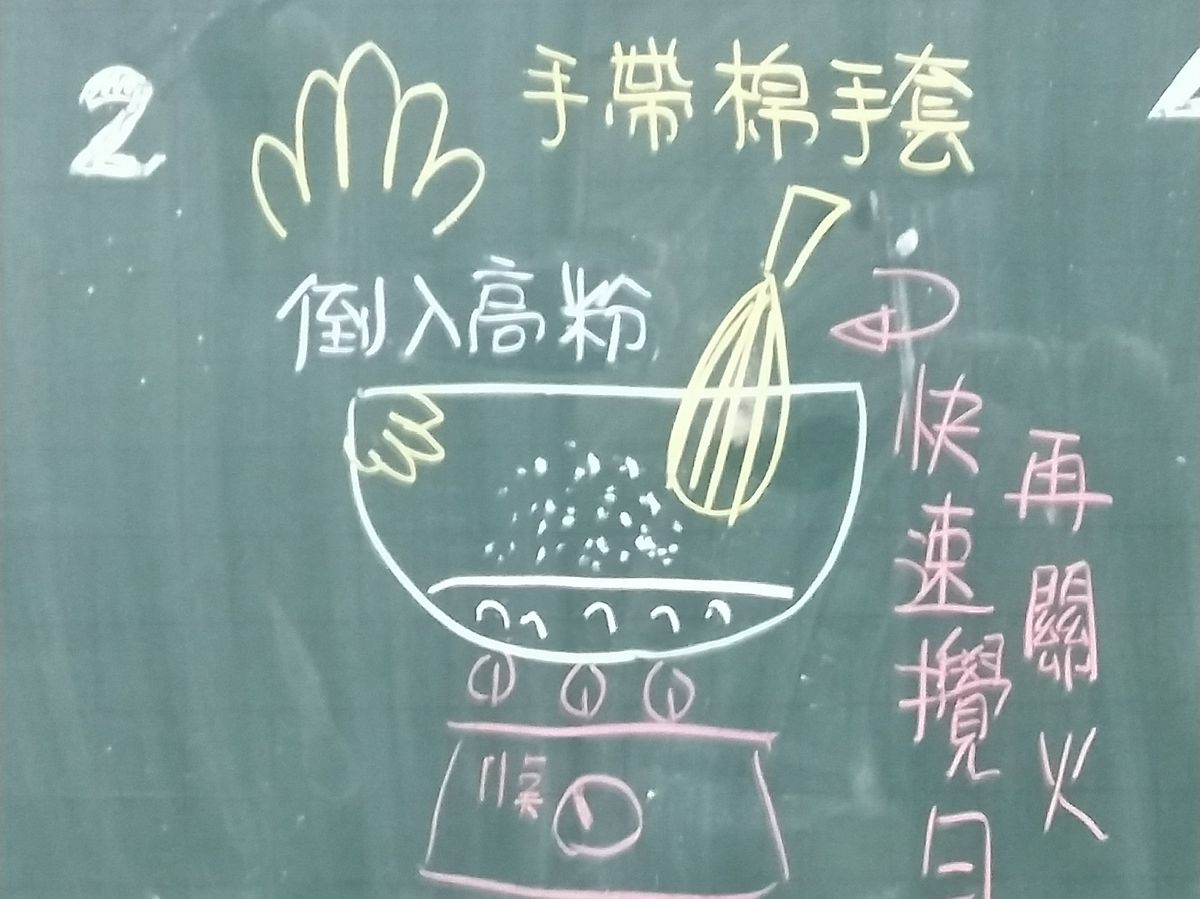 2
手帶棉手套
倒入高粉
快速攪
再關火